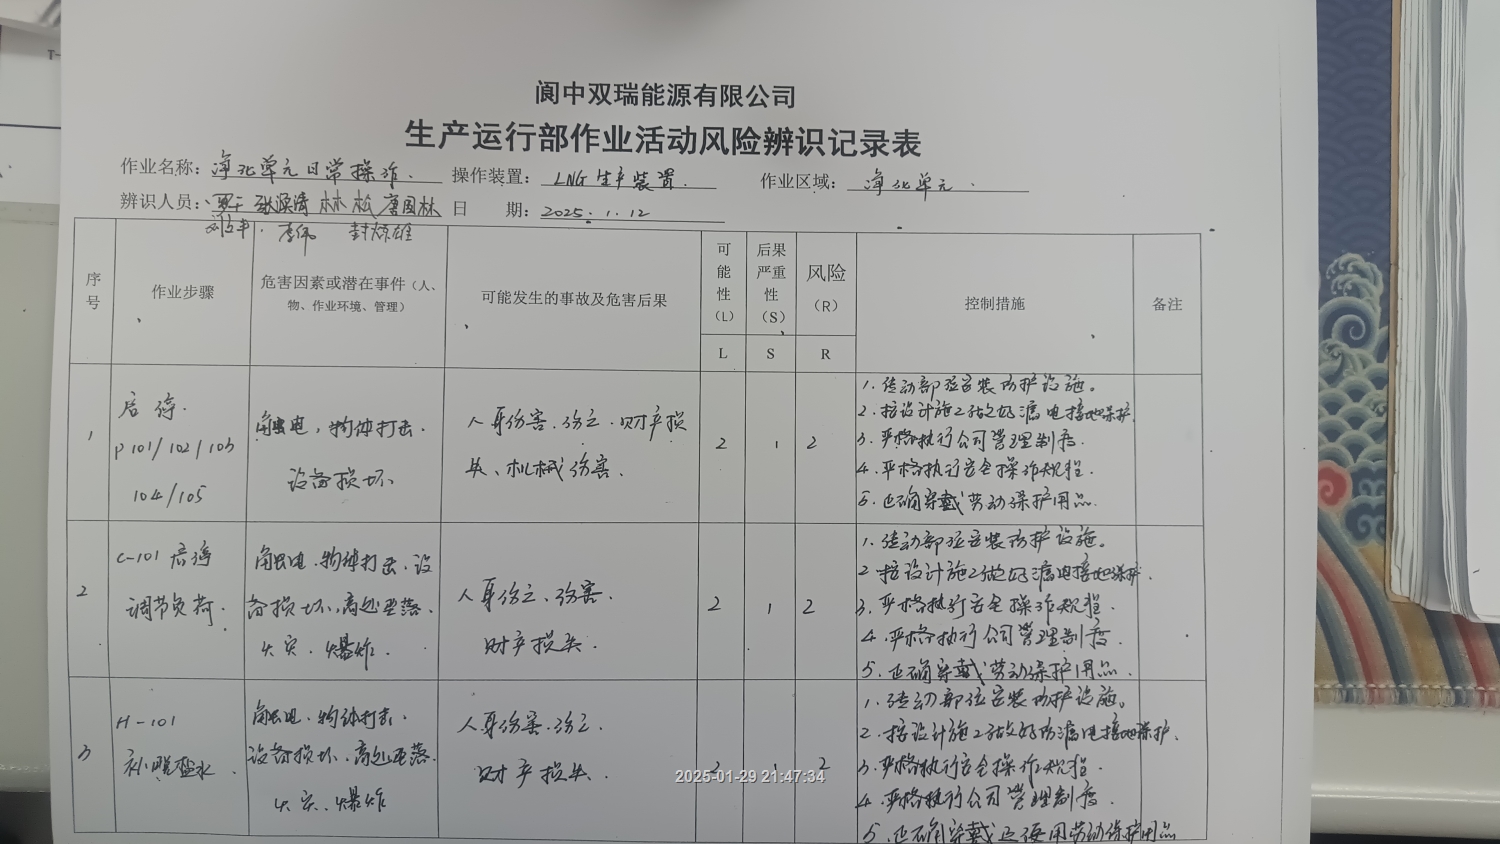 T-
阆中双瑞能源有限公司
生产运行部作业活动风险辨识记录表
作业名称：净化单元日常操作. 操作装置：LNG生产装置. 作业区域：净化单元.
辨识人员：林松 唐国林 日 期：2025.1.12
李伟
序号 作业步骤 危害因素或潜在事件（人、物、作业环境、管理） 可能发生的事故及危害后果 可能性（L） 后果严重性（S） 风险（R） 控制措施 备注
L S R
1
启停.
P101/102/103
104/105
触电，物体打击.
设备损坏
人身伤害.伤亡.财产损
失、机械伤害.
2 1 2
1.传动部位安装防护设施。
2.按设计施工做好漏电接地保护.
3.严格执行公司管理制度.
4.严格执行安全操作规程.
5.正确穿戴劳动保护用品.
2
C-101 启停
调节负荷.
触电.物体打击.设
备损坏、高处坠落.
火灾、爆炸.
人身伤亡、伤害.
财产损失.
2 1 2
1.传动部位安装防护设施。
2 按设计施工做好漏电接地保护.
3.严格执行安全操作规程.
4.严格执行公司管理制度.
5.正确穿戴劳动保护用品.
3
H-101
补脱盐水.
触电.物体打击.
设备损坏.高处坠落.
火灾、爆炸
人身伤害.伤亡.
财产损失.
2 1 2
1.传动部位安装防护设施。
2.按设计施工做好防漏电接地保护.
3.严格执行安全操作规程.
4.严格执行公司管理制度.
5.正确穿戴正使用劳动保护用品
2025-01-29 21:47:34